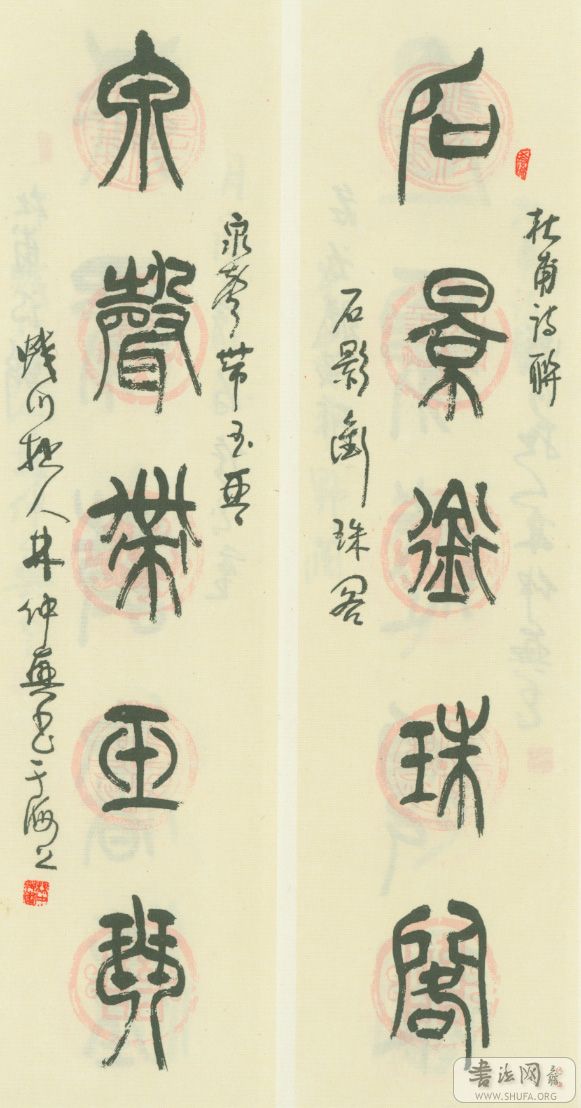 杜甫诗聯
石景銜珠閣
石影銜珠阁
泉聲帶玉琴
泉聲带玉琴
拙人林仲興书于海上
書法网
WWW.SHUFA.ORG